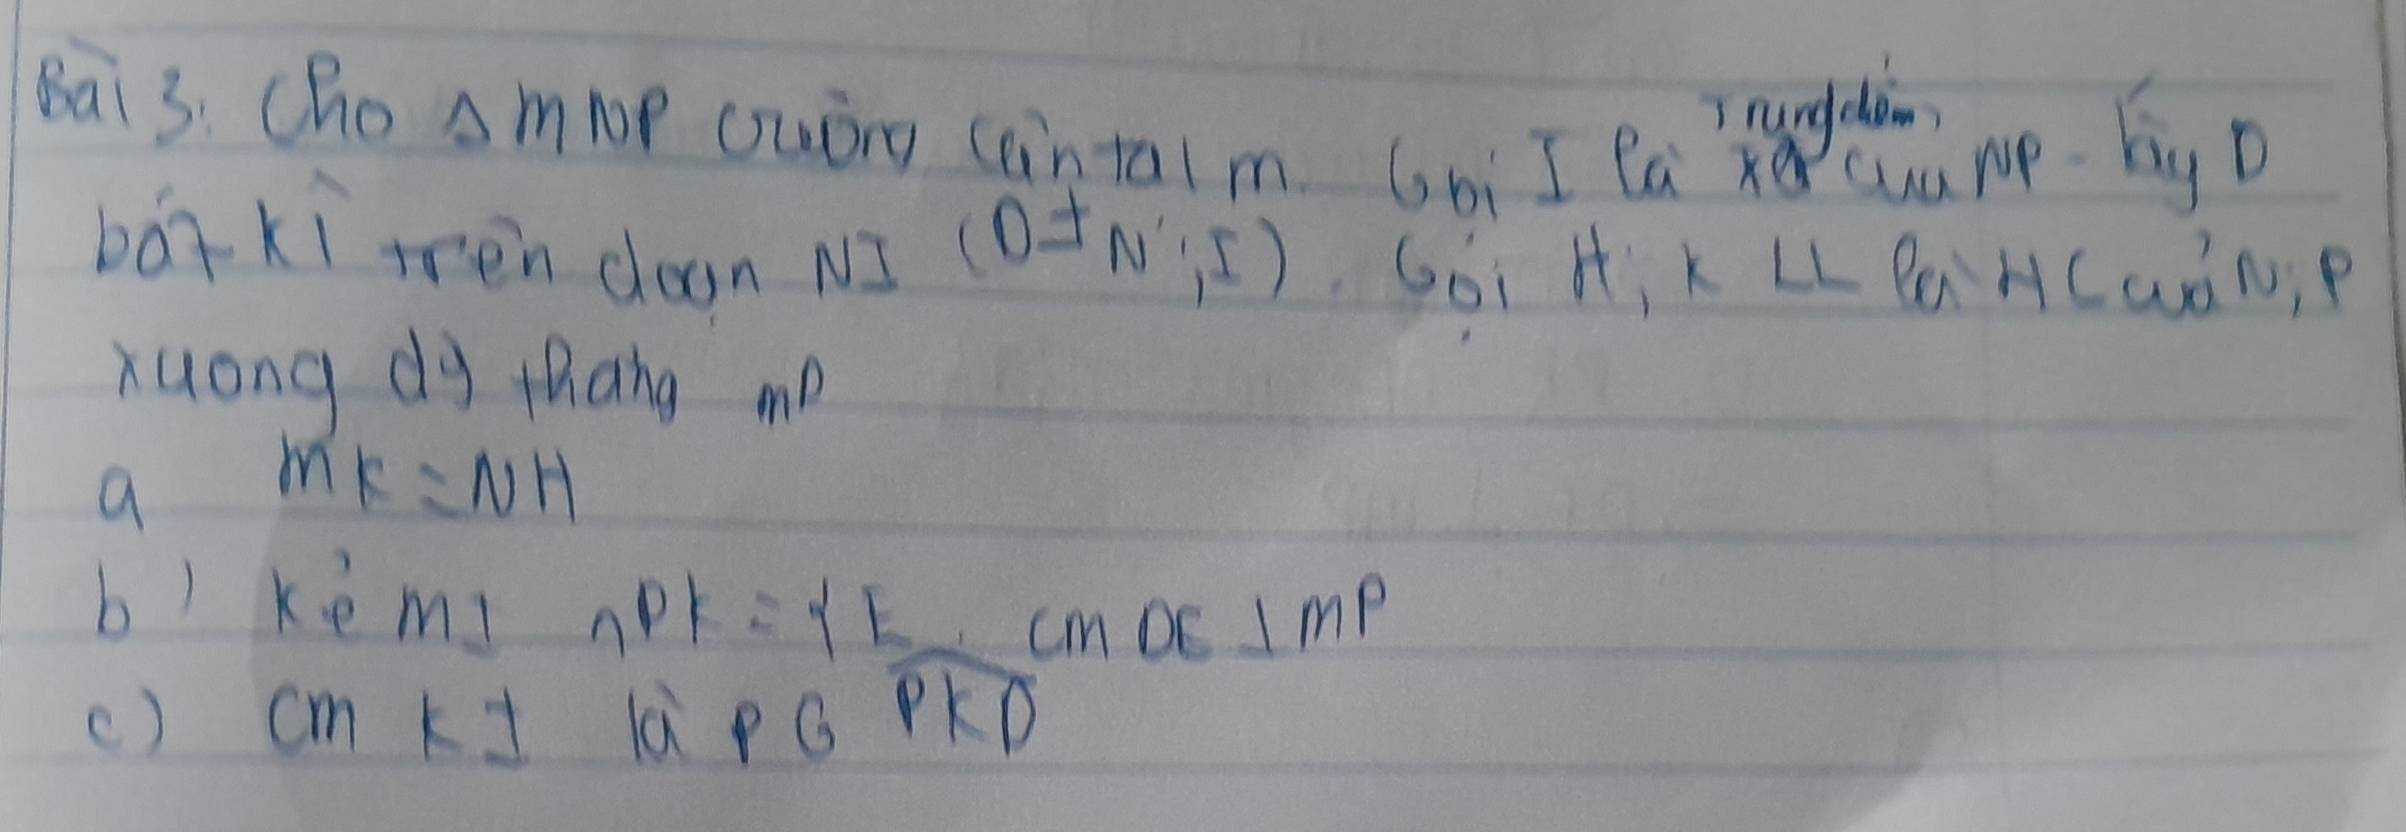 Bài 3: Cho Δ MNP vuông cân tại m. Gọi I là Trung điểm của NP - Lấy D
bất kì trên đoạn NI (D ≠ N; I). Gọi H; K LL là HC của N; P
xuong dg thang mD
a mk = NH
b) kẻ mI ∩ PK = { E. cm DE ⊥ mP
c) cm KI là PG \widehat{PKD}